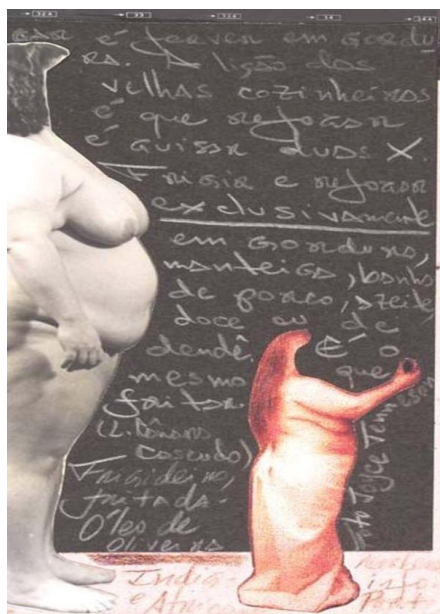 é ferver em GORDU
RA. A lição das
velhas cozinheiras
é que refogar
é guisar duas X.
Frigir e refogar
exclusivamente
em gordura,
manteiga, banha
de porco, azeite
doce ou de
dendê. É o
mesmo que
fritar.
(L. Câmara
Cascudo)
Frigideira,
fritada.
Óleo de
oliveira
Foto Joyce Tenneson
India
e Africa